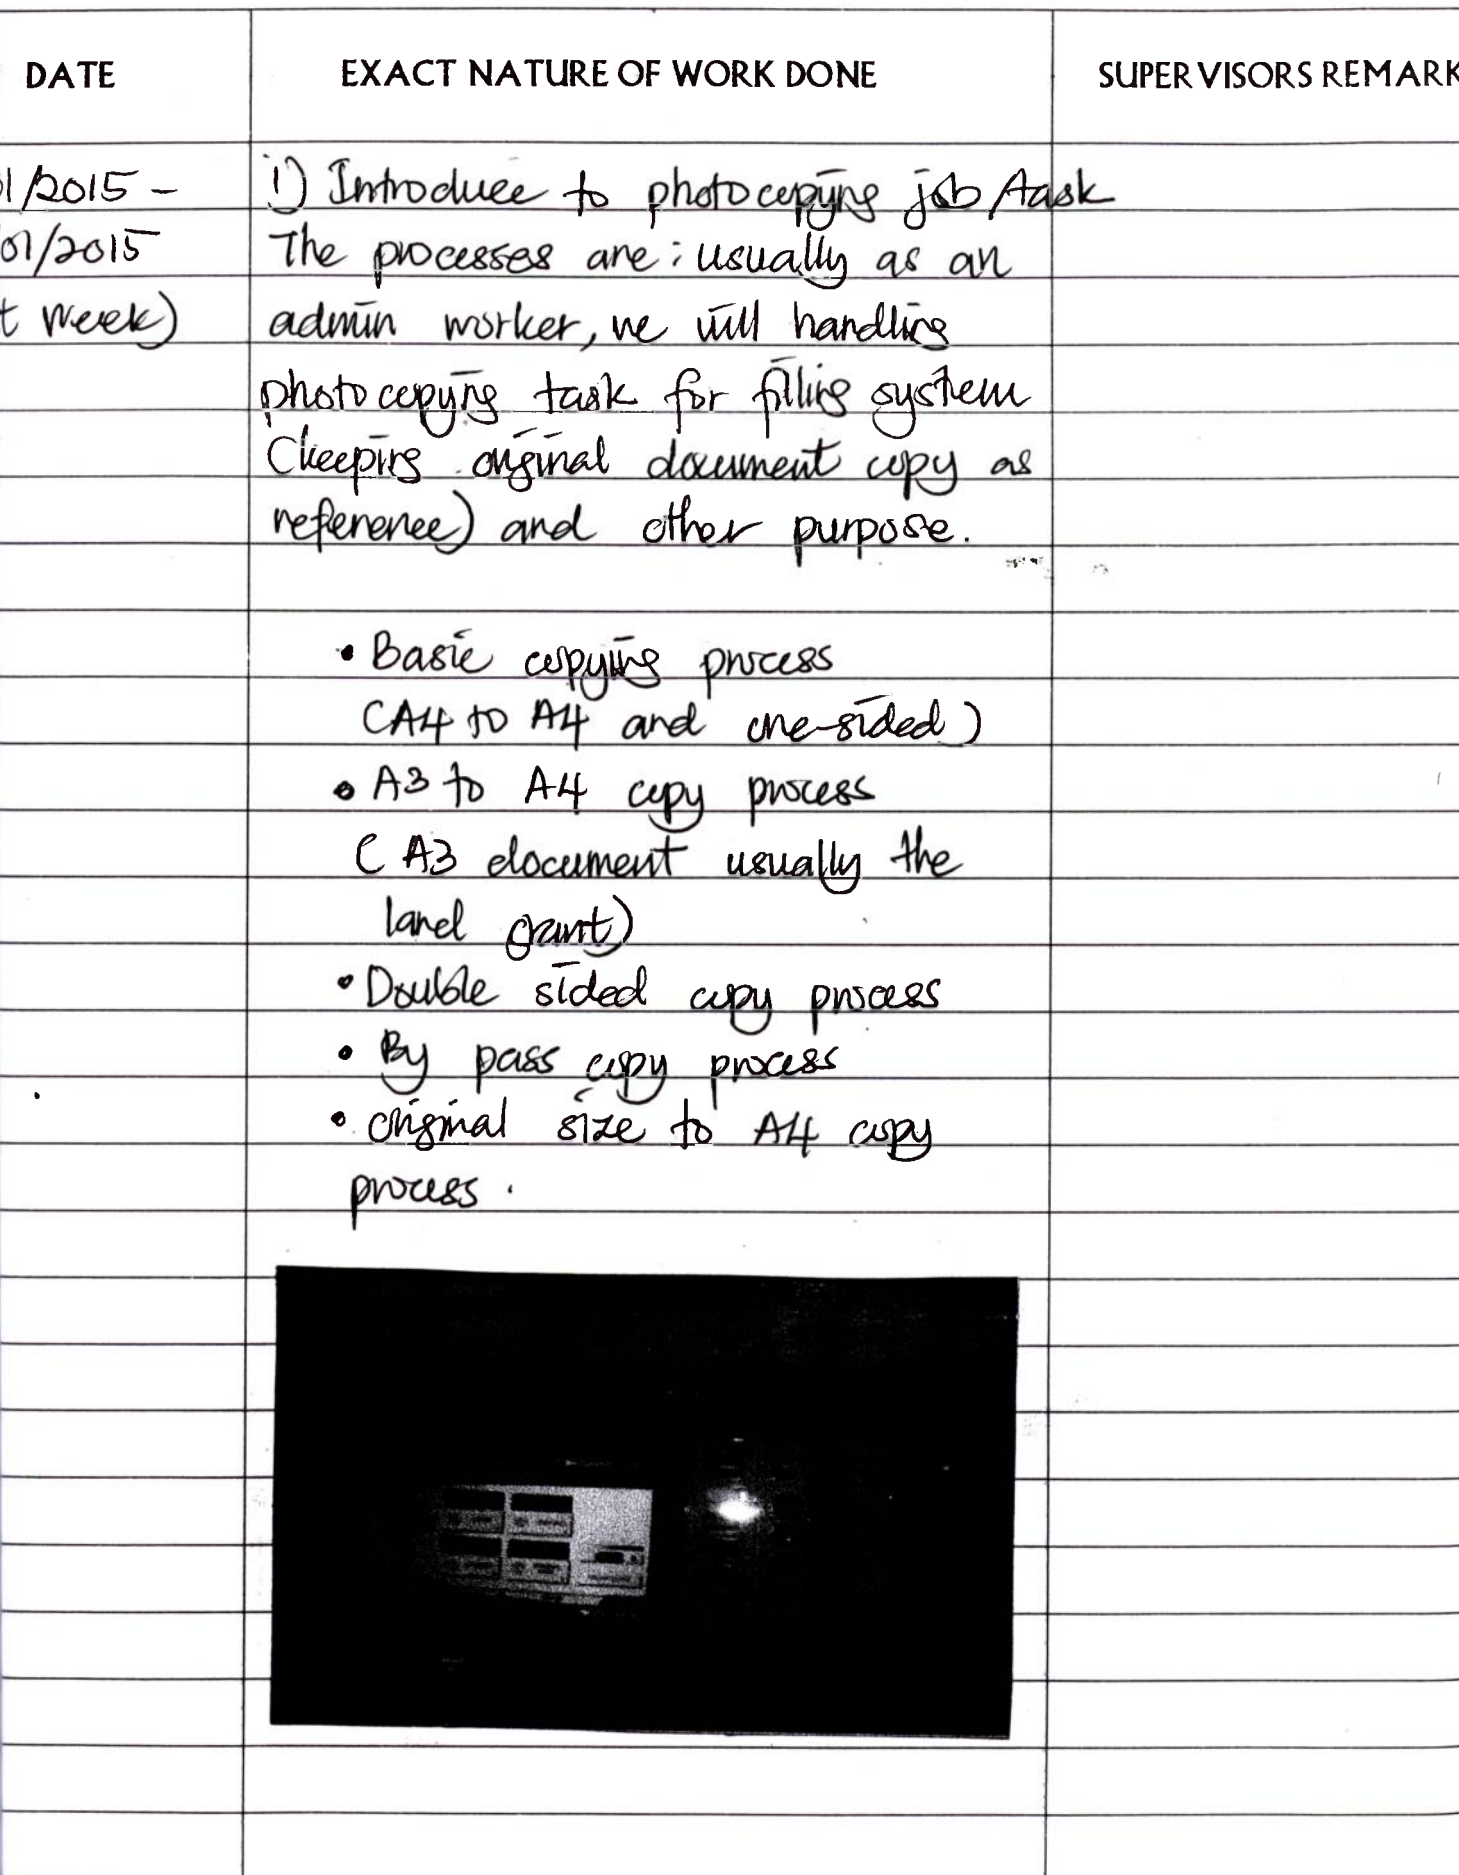 DATE EXACT NATURE OF WORK DONE SUPERVISORS REMARK
1/2015 - i) Introduce to photocopying job/task
01/2015 The processes are : usually as an
t week) admin worker, we will handling
photocopying task for filling system
(keeping original document copy as
reference) and other purpose.
• Basic copying process
(A4 to A4 and one-sided)
• A3 to A4 copy process
( A3 document usually the
land grant)
• Double sided copy process
• By pass copy process
• original size to A4 copy
process.